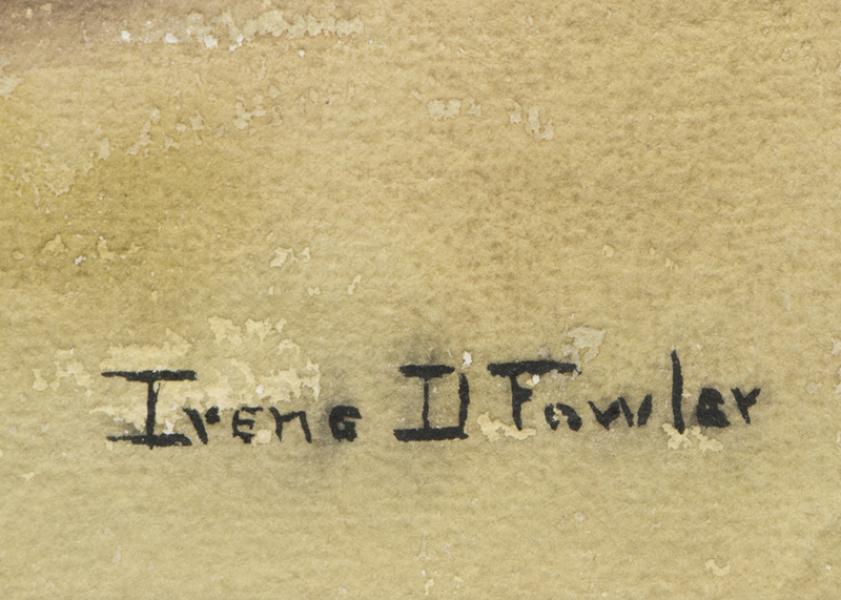 Irene D Fowler